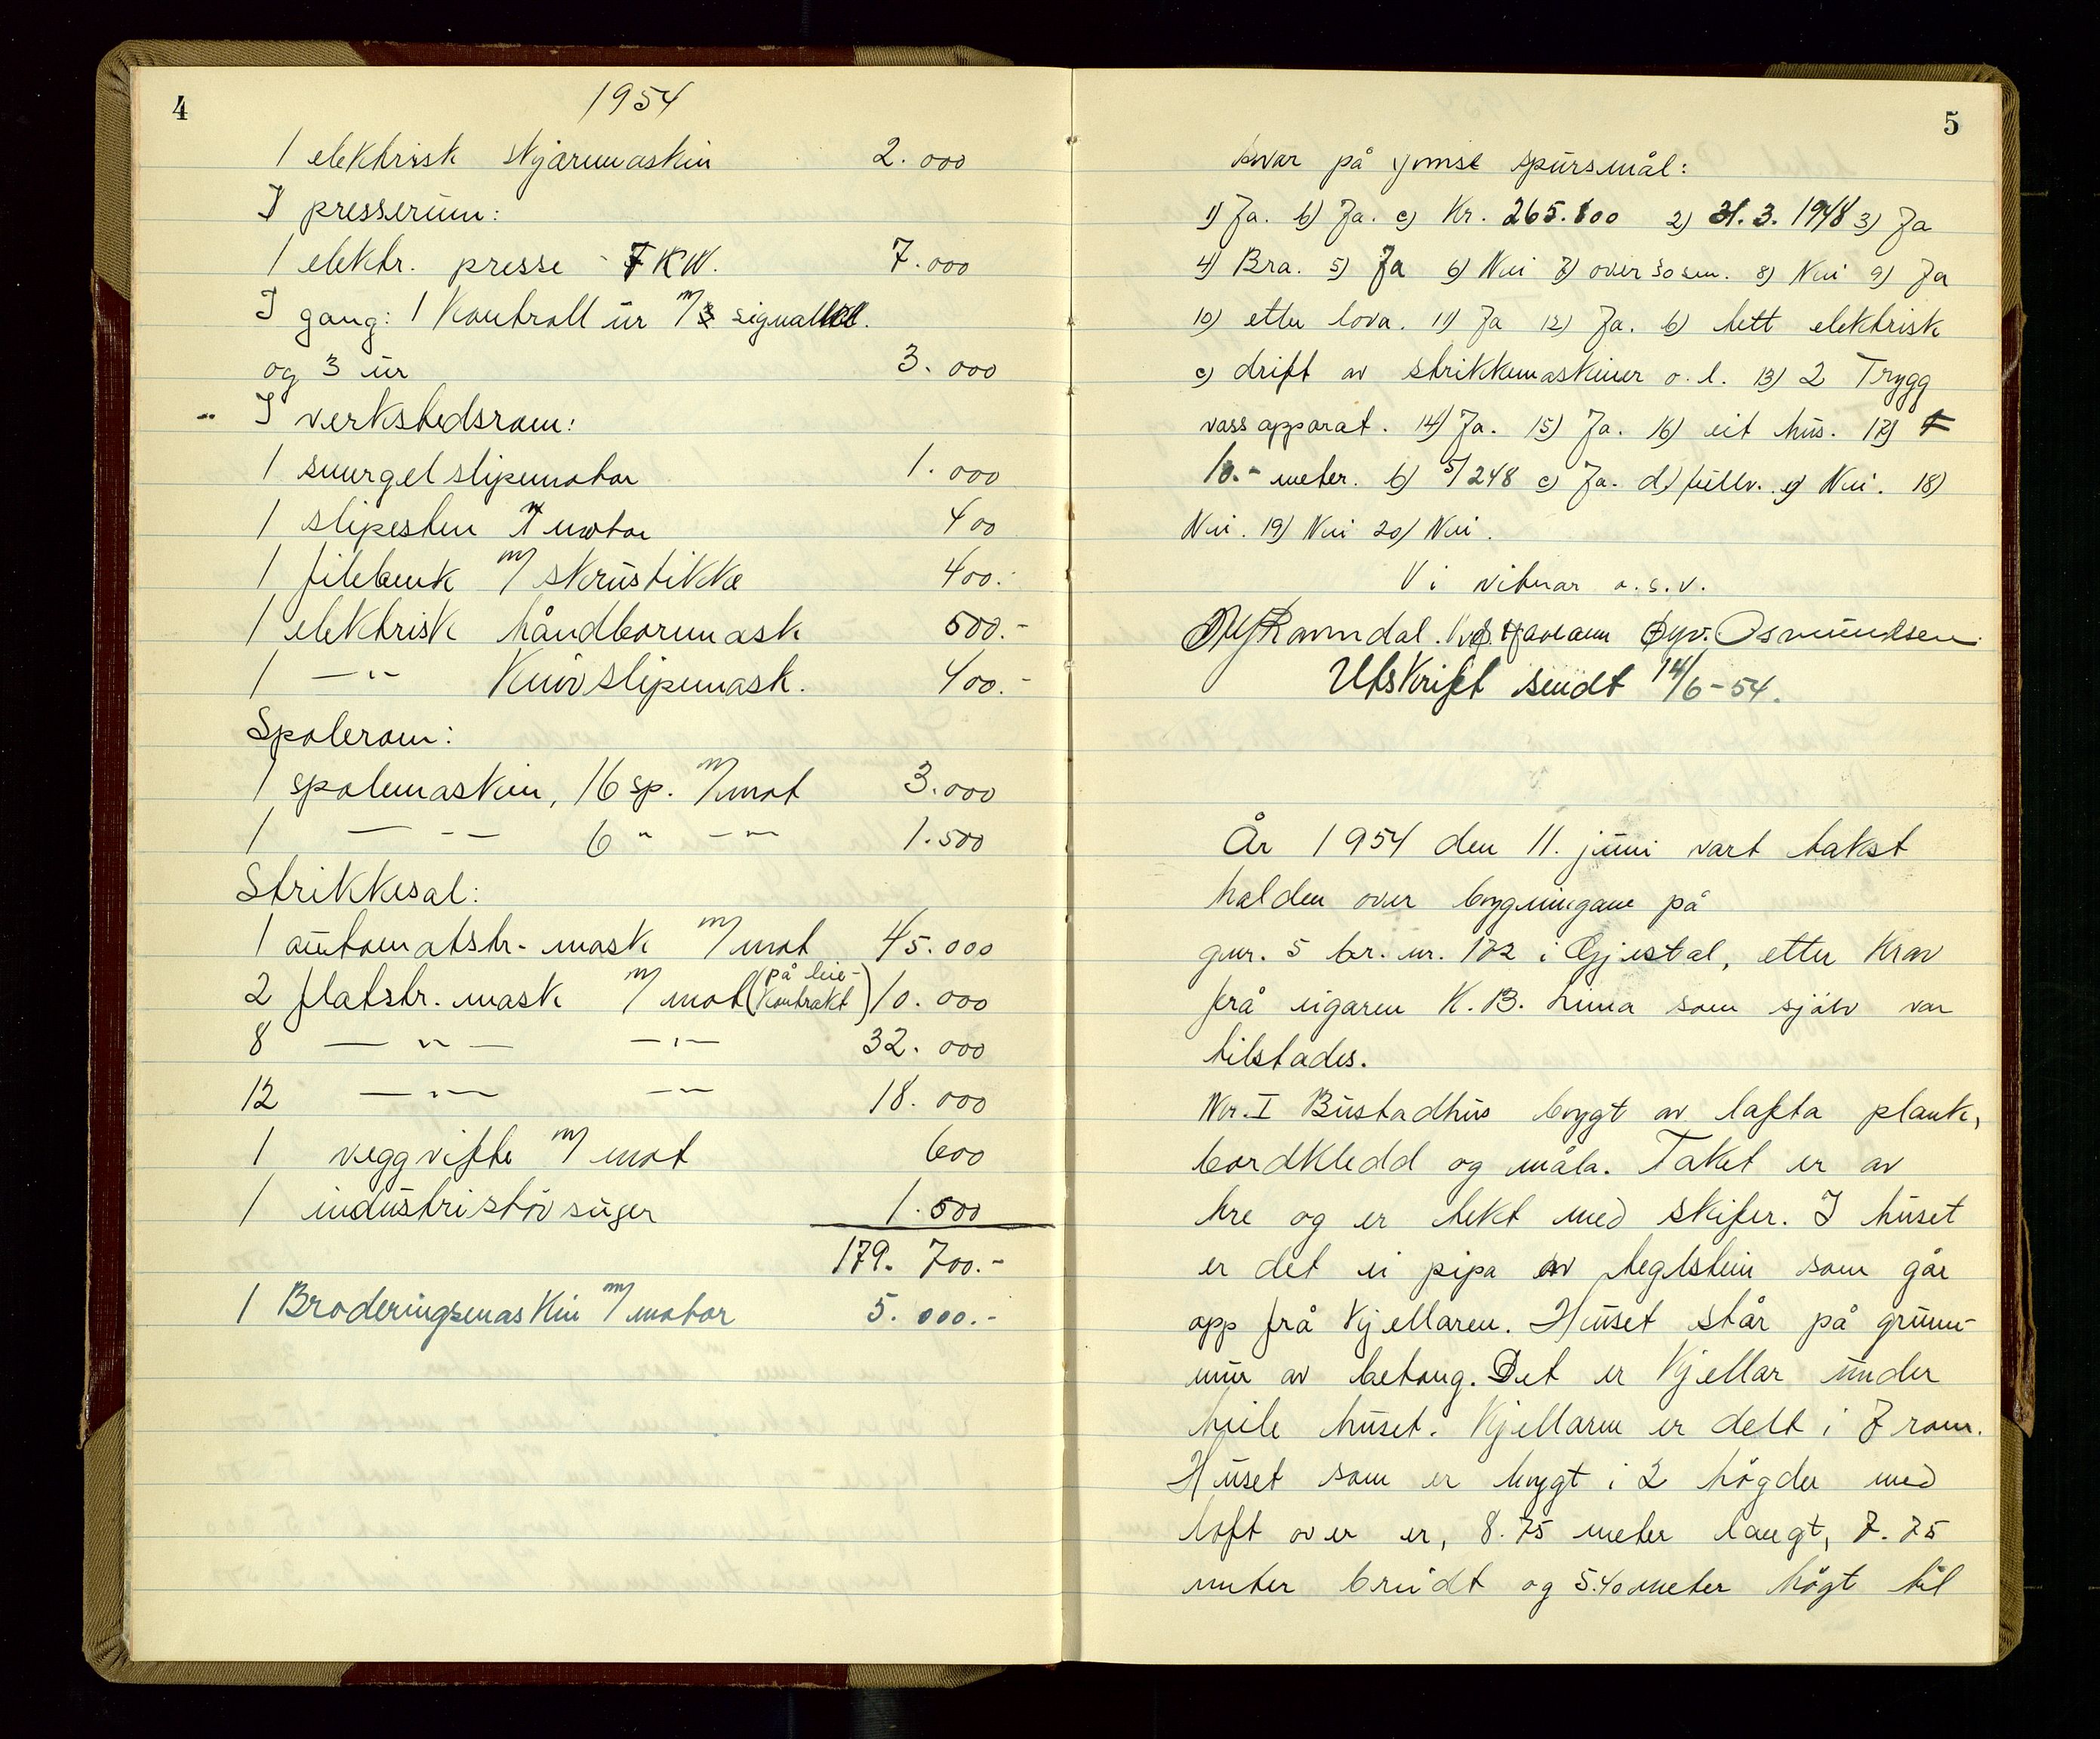 4
1954
1 elektrisk skjæremaskin 2.000
I presserum:
1 elektr. presse - 7 KW. 7.000
I gang: 1 Kontroll ur m/3 signal
og 3 ur 3.000
I verkstedsrom:
1 smergel slipemotor 1.000
1 slipesten m/ motor 400
1 filebenk m/ skrustikke 400.-
1 elektrisk håndboremask 500.-
1 —"— Knivslipemask. 400.-
Spolerom:
1 spolemaskin, 16 sp. m/mot 3.000
1 — -- — 6 " —"— 1.500
Strikkesal:
1 automatstr. mask m/mot 45.000
2 flatstr. mask m/mot (på leie-kontrakt) 10.000
8 —"— —"— 32.000
12 —"— —"— 18.000
1 veggvifte m/ mot 600
1 industristøvsuger 1.500
179.700.-
1 Broderingsmaskin m/motor 5.000.-
5
Svar på ymse spursmål:
1) Ja. b) Ja. c) Kr. 265.800 2) 31.3.1948 3) Ja
4) Bra. 5) Ja 6) Nei 7) over 50 sm. 8) Nei 9) Ja
10) etter lova. 11) Ja 12) Ja. b) lett elektrisk
c) drift av strikkemaskiner o.l. 13) 2 Trygg
vassapparat. 14) Ja. 15) Ja. 16) eit hus. 17)
10.- meter. b) 5/248 c) Ja. d) fullv. e) Nei. 18)
Nei. 19) Nei 20) Nei.
Vi vitnar o.s.v.
Ramndal. Øyv. Osmundsen
Utskrift sendt 14/6-54.
År 1954 den 11. juni vart takst
halden over bygningane på
gnr. 5 br. nr. 172 i Gjestal, etter krav
frå eigaren K. B. Lima som sjølv var
tilstades.
Nr. I Bustadhus bygt av lafta plank,
bordkledd og måla. Taket er av
tre og er tekt med skifer. I huset
er det ei pipa av teglstein som går
opp frå kjellaren. Huset står på grunn-
mur av betong. Det er kjellar under
heile huset. Kjellaren er delt i 7 rom.
Huset som er bygt i 2 høgder med
loft over er, 8.75 meter langt, 7.75
meter breidt og 5.40 meter høgt til